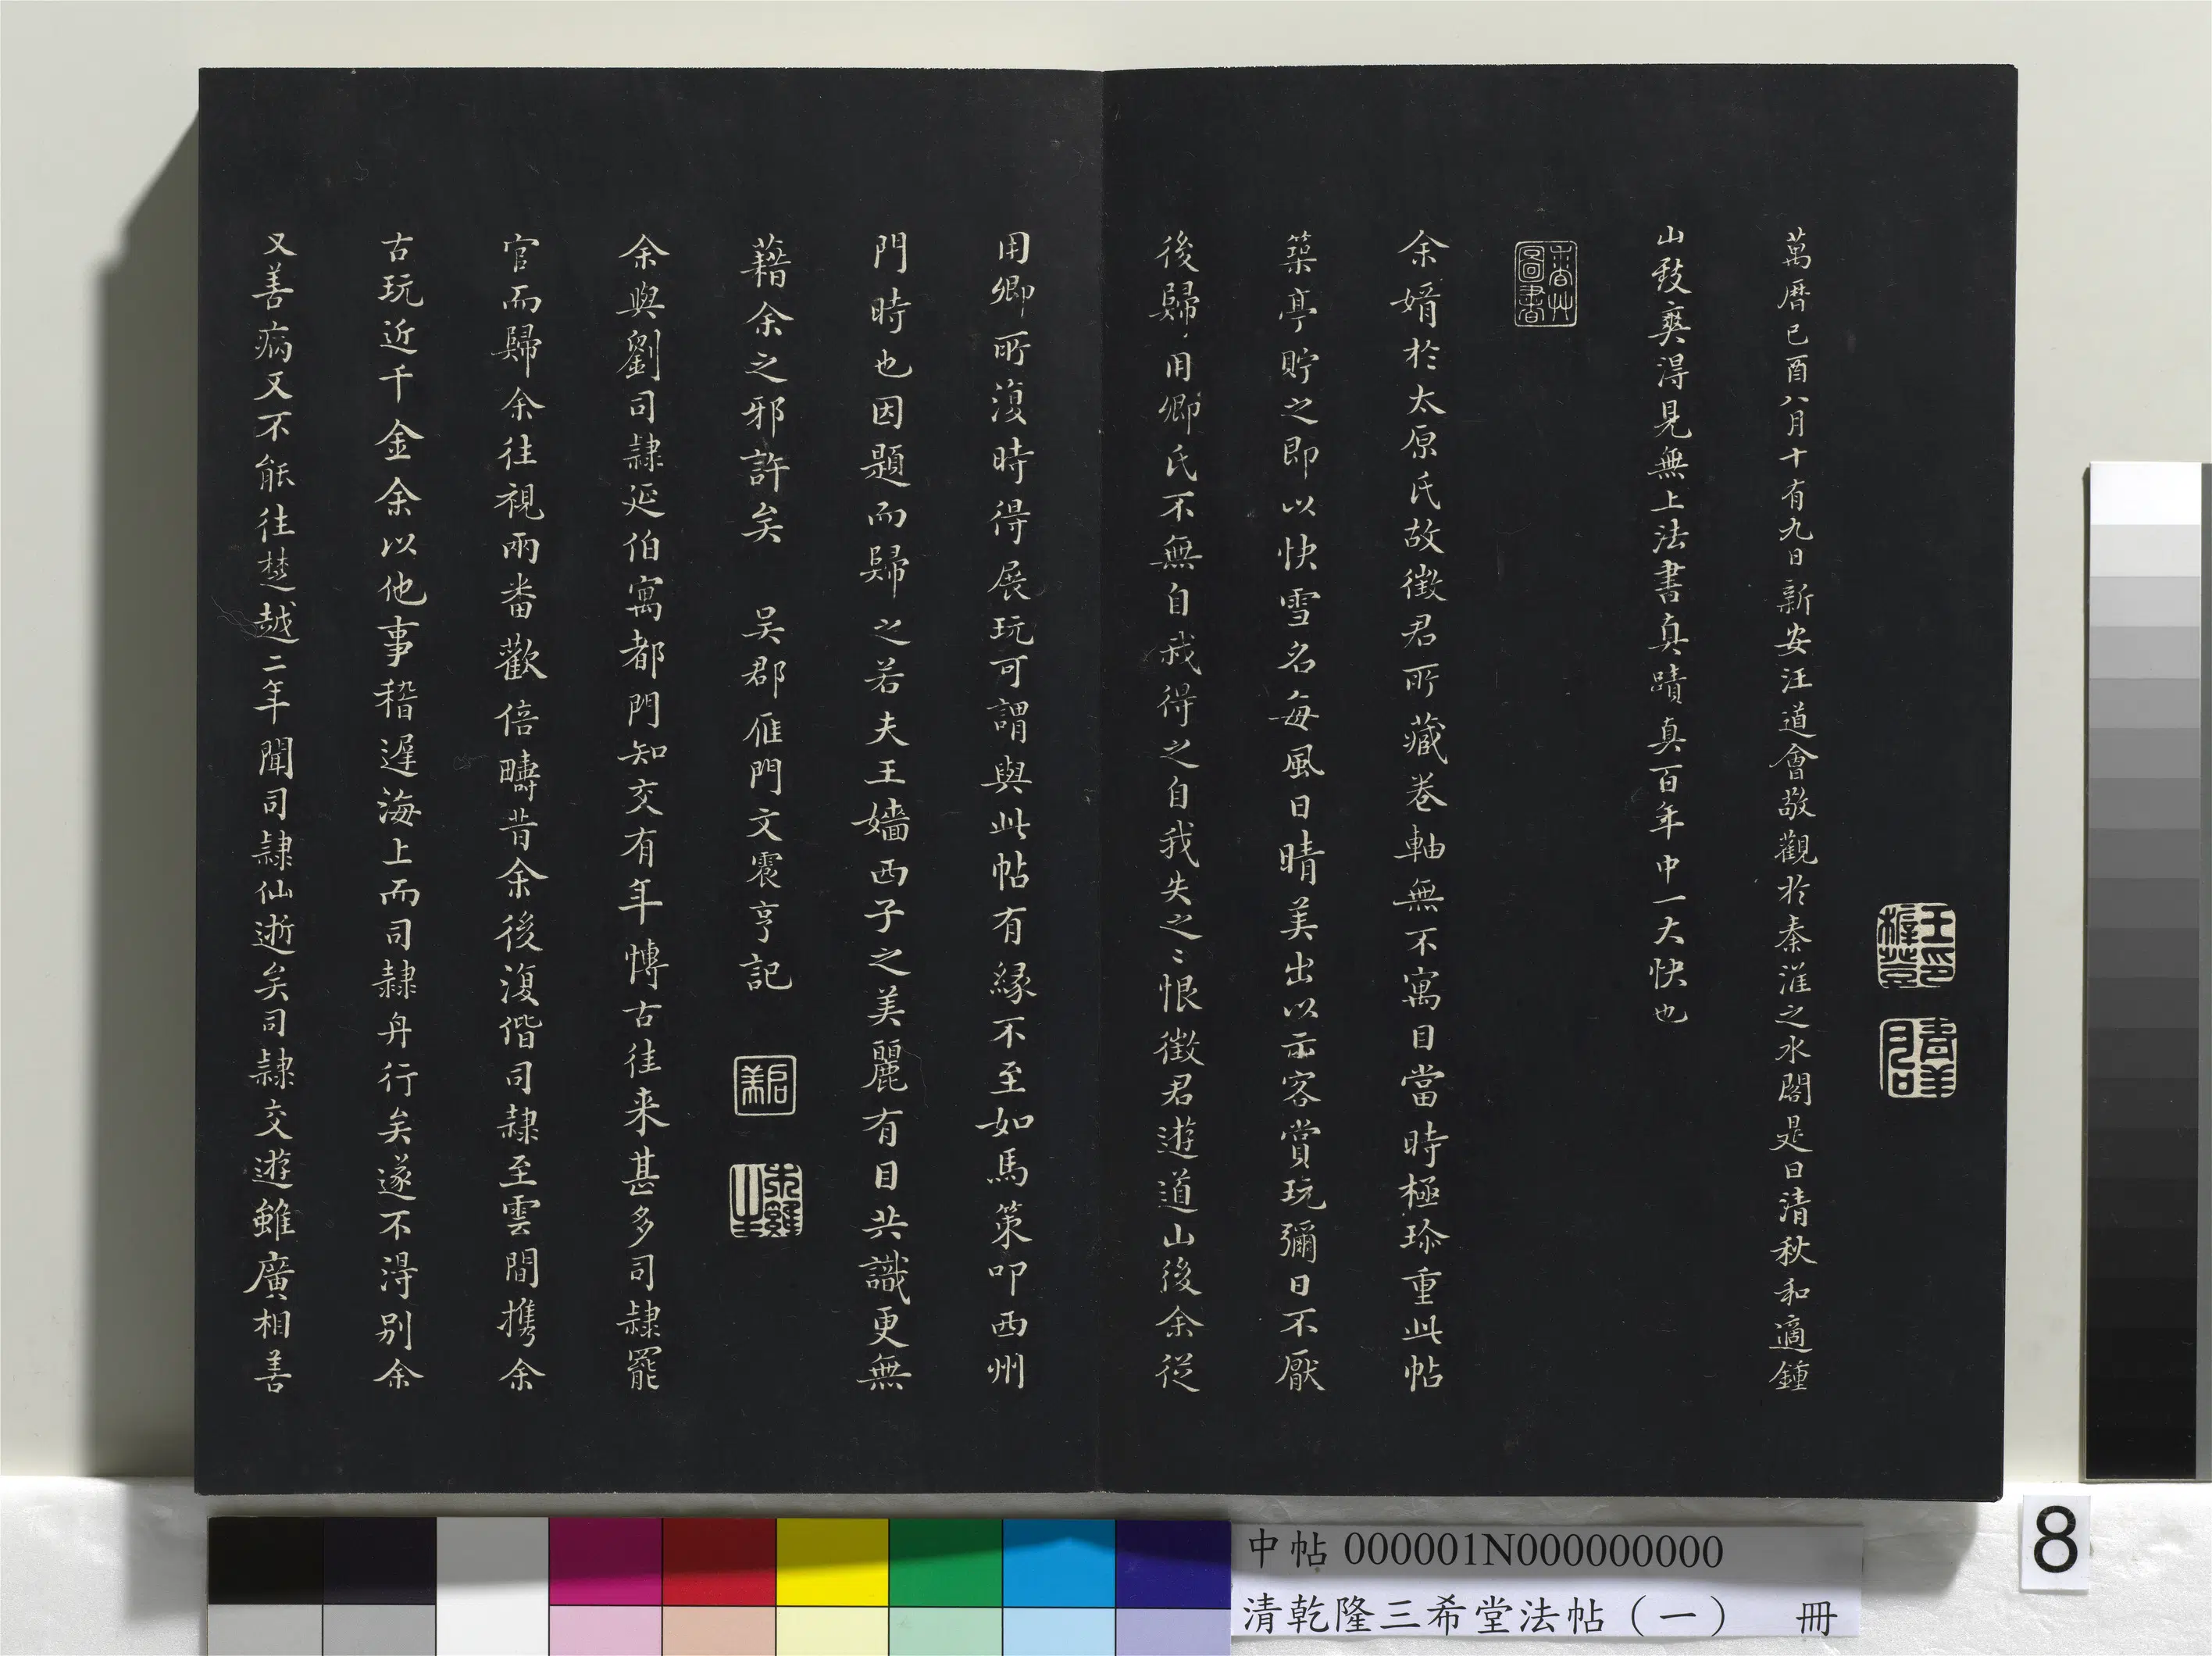 萬曆己酉八月十有九日新安汪道會敬觀於秦淮之水閣是日清秋和適鍾
山致爽得見無上法書真蹟真百年中一大快也
余婿於太原氏故徵君所藏卷軸無不寓目當時極珍重此帖
築亭貯之即以快雪名每風日晴美出以示客賞玩彌日不厭
後歸用卿氏不無自我得之自我失之〻恨徵君遊道山後余從
用卿所復時得展玩可謂與此帖有緣不至如馬策叩西州
門時也因題而歸之若夫王嬙西子之美麗有目共識更無
藉余之邪許矣 吳郡雁門文震亨記
余與劉司隸延伯寓都門知交有年慱古往来甚多司隸罷
官而歸余往視兩番歡倍疇昔余後復偕司隸至雲間携余
古玩近千金余以他事稽遲海上而司隸舟行矣遂不得别余
又善病又不能往楚越二年聞司隸仙逝矣司隸交遊雖廣相善
中帖 000001N000000000
清乾隆三希堂法帖（一） 冊
8